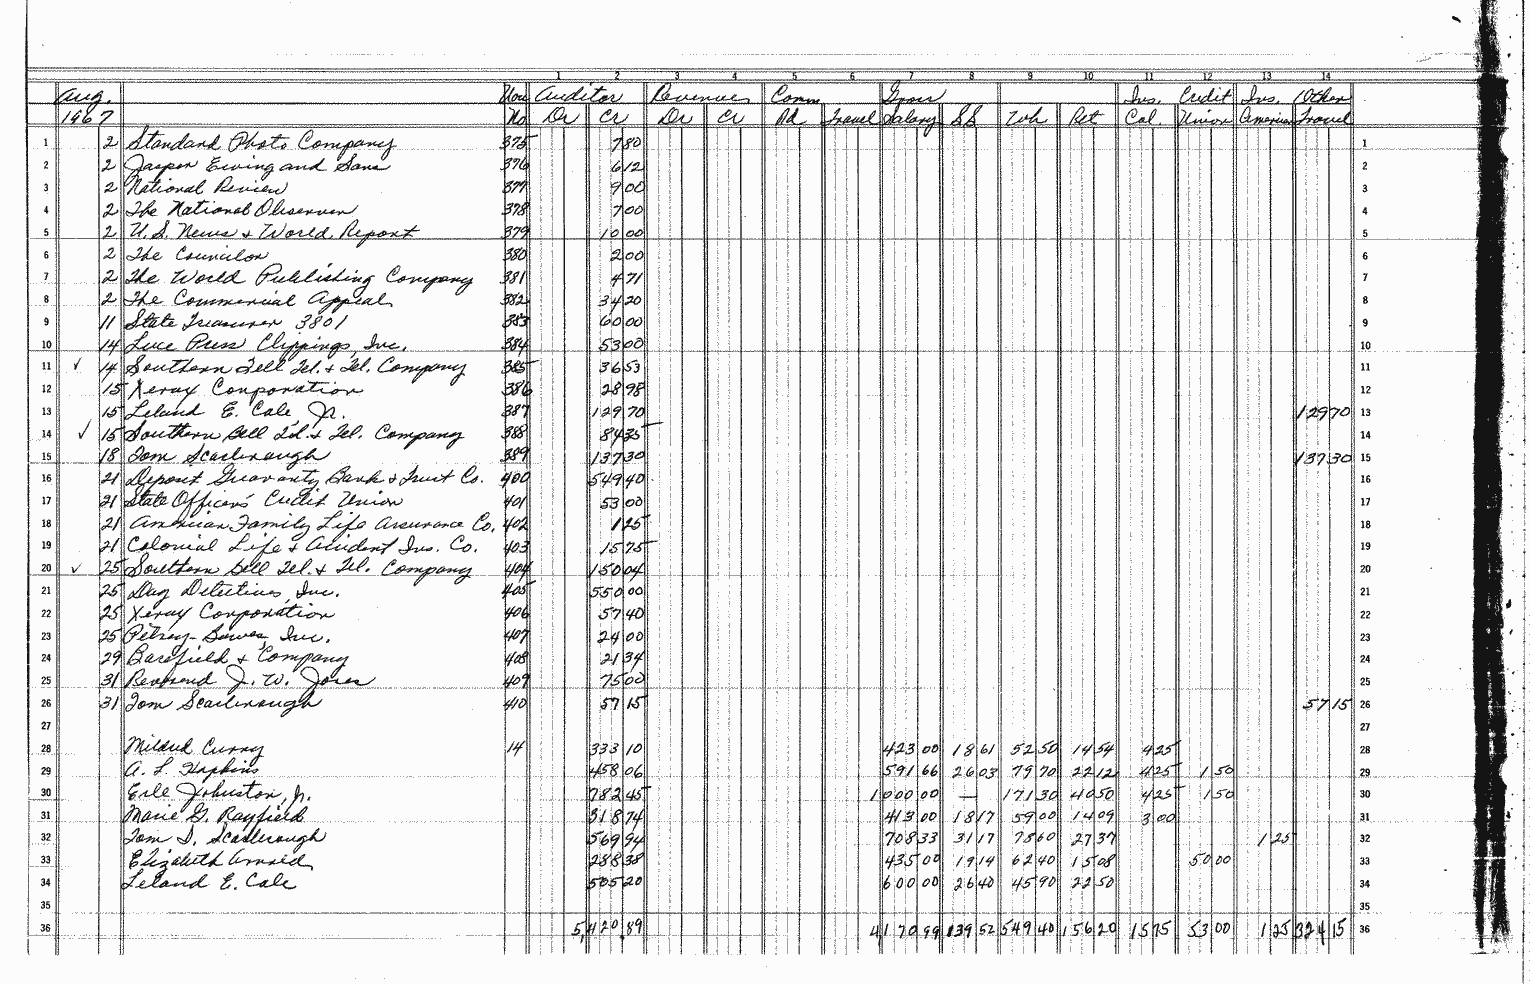 1 2 3 4 5 6 7 8 9 10 11 12 13 14
Aug. Vou Auditor Revenues Comm Gross Ins. Credit Ins. Other
1967 No Dr Cr Dr Cr Ad. Travel Salary SS Wh Ret Cal. Union American Travel
1 2 Standard Photo Company 375 7 80 1
2 2 Jasper Ewing and Sons 376 6 12 2
3 2 National Review 377 9 00 3
4 2 The National Observer 378 7 00 4
5 2 U.S. News & World Report 379 10 00 5
6 2 The Councilor 380 2 00 6
7 2 The World Publishing Company 381 4 71 7
8 2 The Commercial Appeal 382 34 20 8
9 11 State Treasurer 3801 383 60 00 9
10 14 Luce Press Clippings, Inc. 384 53 00 10
11 ✓ 14 Southern Bell Tel. & Tel. Company 385 36 53 11
12 15 Xerox Corporation 386 28 98 12
13 15 Leland E. Cole Jr. 387 129 70 129 70 13
14 ✓ 15 Southern Bell Tel. & Tel. Company 388 84 35 14
15 18 Tom Scarbrough 389 137 30 137 30 15
16 21 Deposit Guaranty Bank & Trust Co. 400 549 40 16
17 21 State Officers' Credit Union 401 53 00 17
18 21 American Family Life Assurance Co. 402 1 25 18
19 21 Colonial Life & Accident Ins. Co. 403 15 75 19
20 ✓ 25 Southern Bell Tel. & Tel. Company 404 150 04 20
21 25 Day Detectives, Inc. 405 550 00 21
22 25 Xerox Corporation 406 57 40 22
23 25 Pitney-Bowes, Inc. 407 24 00 23
24 29 Barefield & Company 408 21 34 24
25 31 Reverend J. W. Jones 409 75 00 25
26 31 Tom Scarbrough 410 57 15 57 15 26
27 27
28 Mildred Curry 14 333 10 423 00 18 61 52 50 14 54 4 25 28
29 A. L. Hopkins 458 06 591 66 26 03 79 70 22 12 4 25 1 50 29
30 Erle Johnston, Jr. 782 45 1 000 00 — 171 30 40 50 4 25 1 50 30
31 Marie G. Rayfield 318 74 413 00 18 17 59 00 14 09 3 00 31
32 Tom D. Scarbrough 569 94 708 33 31 17 78 60 27 37 1 25 32
33 Elizabeth Arnold 288 38 435 00 19 14 62 40 15 08 50 00 33
34 Leland E. Cole 505 20 600 00 26 40 45 90 22 50 34
35 35
36 5,420.89 4,170 99 139 52 549 40 156 20 15 75 53 00 1 25 324 15 36